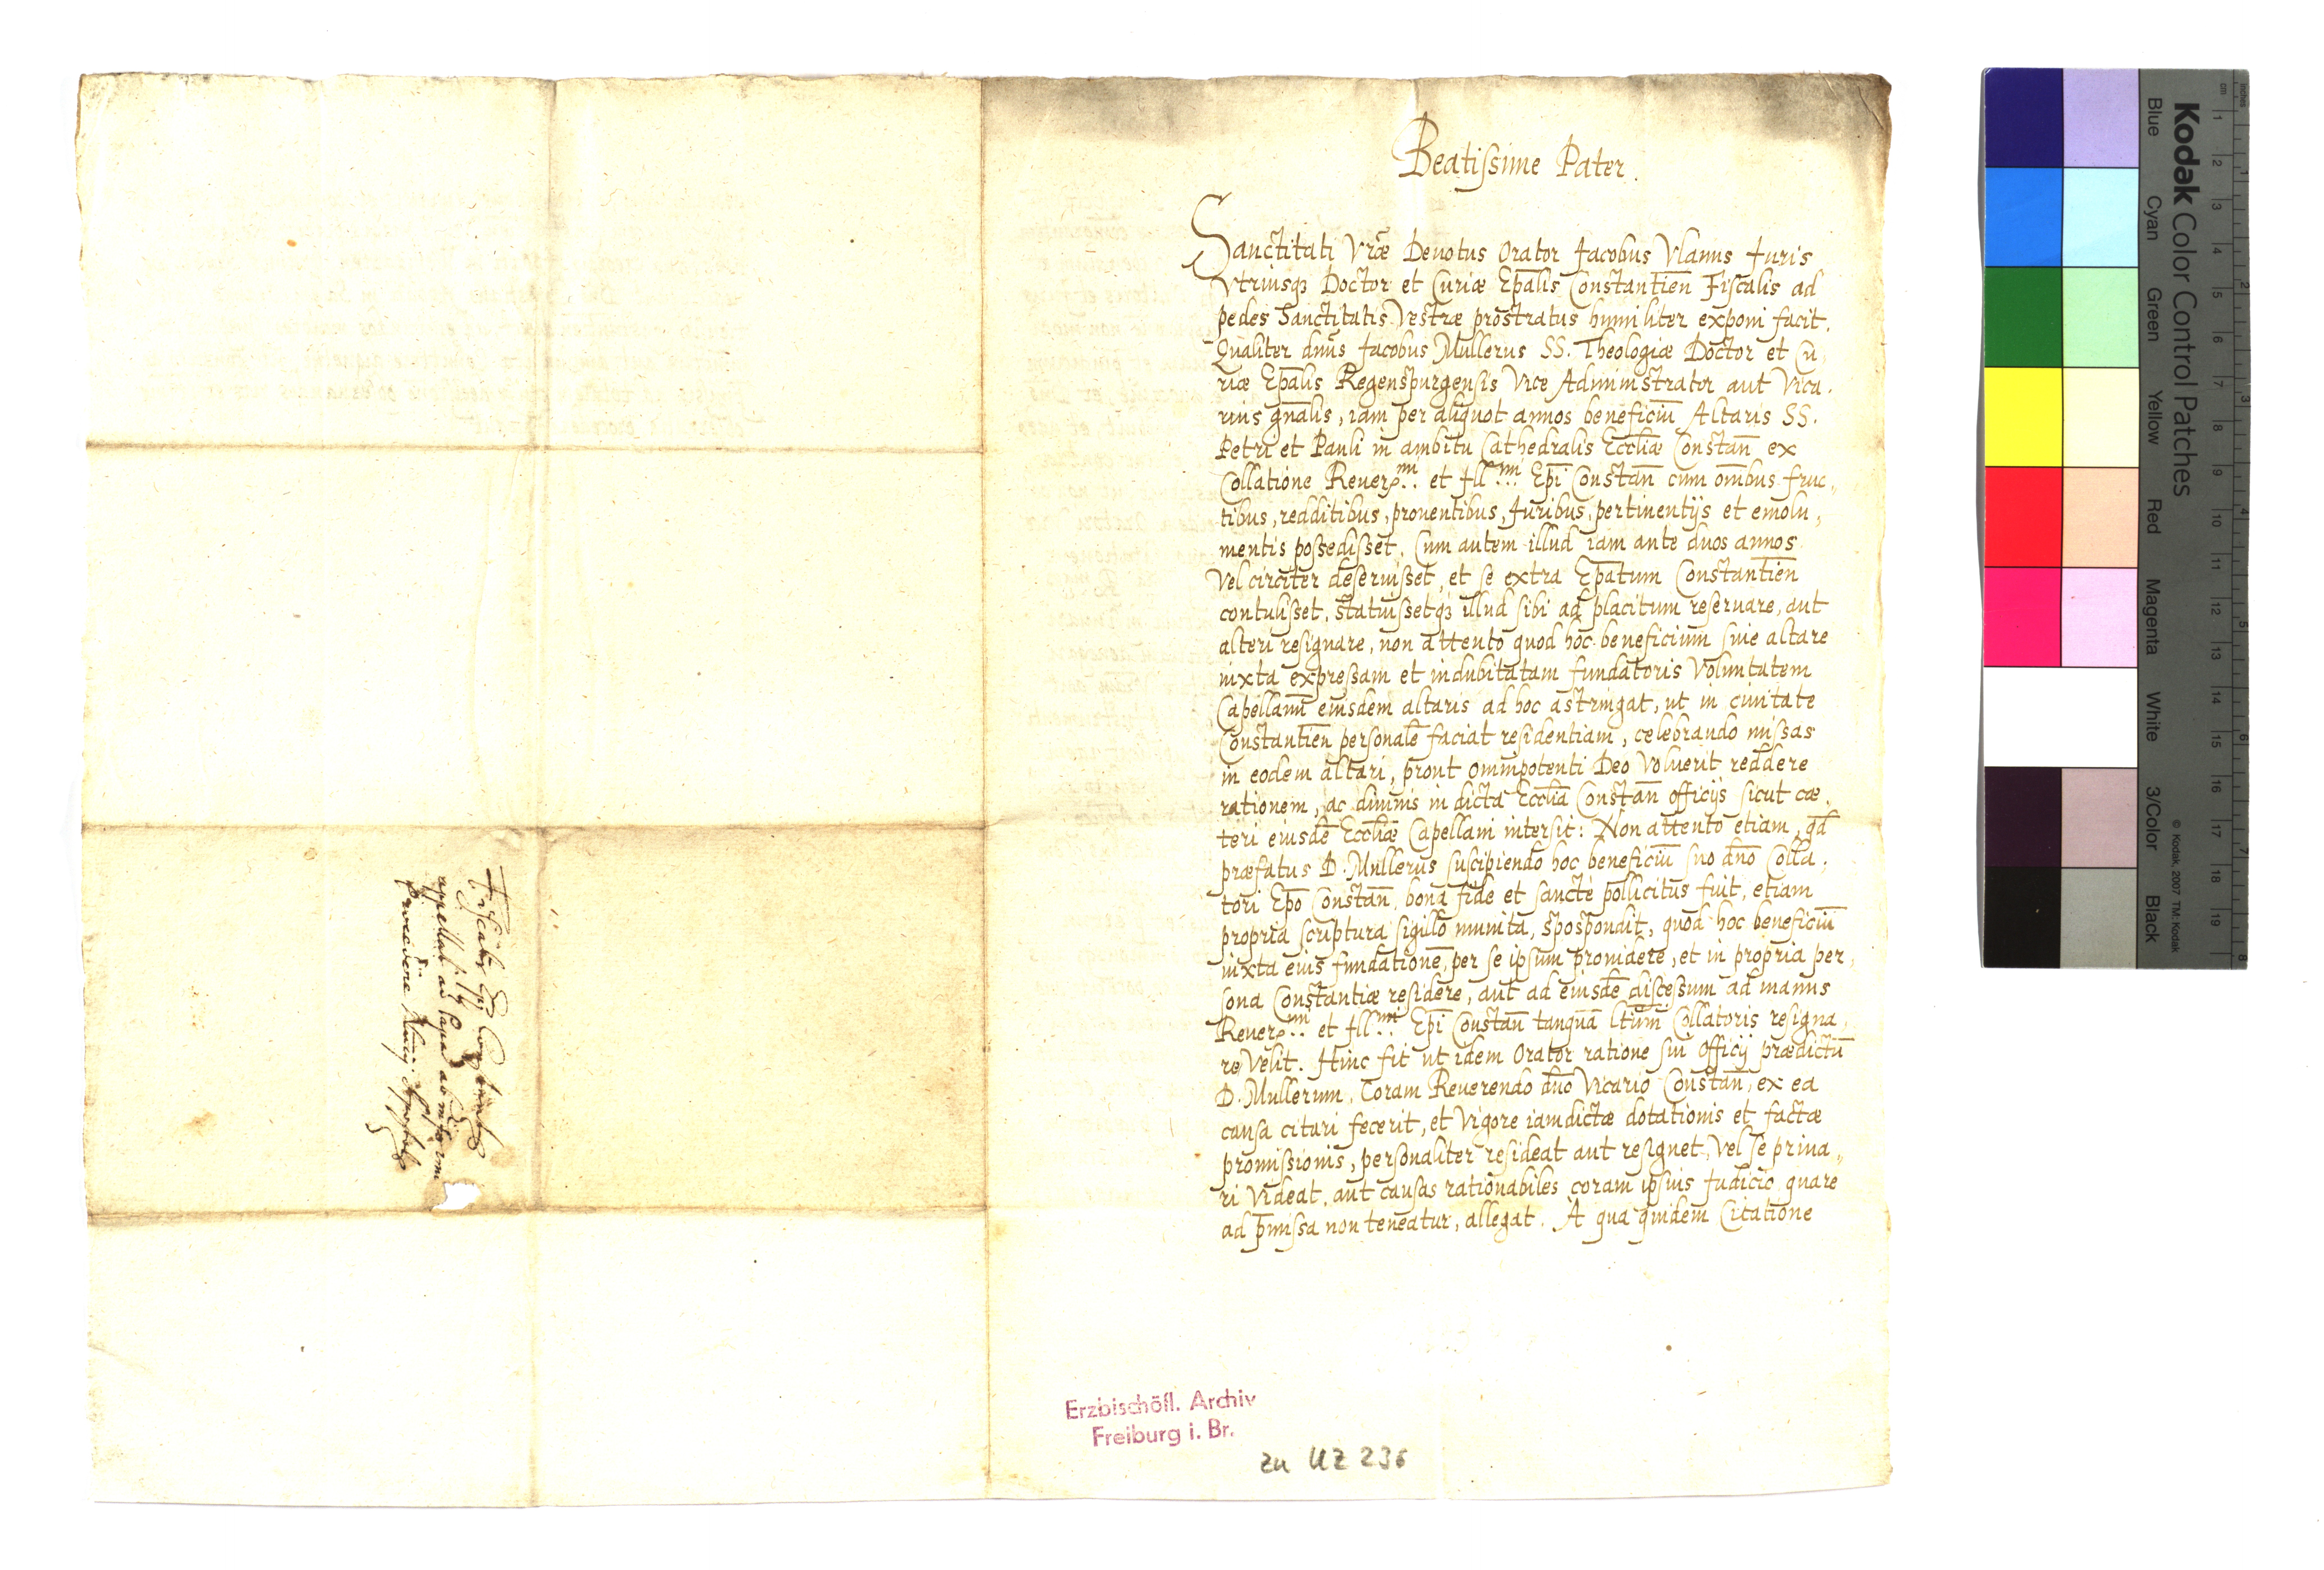 Beatissime Pater.
Sanctitati Vræ Deuotus Orator Jacobus Vlanus Juris
Vtriusqʒ Doctor et Curiæ Epālis Constantien̄ Fiscalis ad
pedes Sanctitatis Vestræ prostratus humiliter exponi facit.
Qualiter dnūs Jacobus Mullerus SS. Theologiæ Doctor et Cu,
riæ Epālis Regenspurgensis Vice Administrator aut Vica,
rius gn̄alis, iam per aliquot annos beneficiū Altaris SS.
Petri et Pauli in ambitu Cathedralis Eccl̄iæ Constan̄ ex
Collatione Reuer.mi et Ill.mi Ep̄i Constan̄ cum om̄bus fruc,
tibus, redditibus, prouentibus, Juribus, pertinentijs et emolu,
mentis possedisset. Cum autem illud iam ante duos annos
Vel circiter deseruisset, et se extra Ep̄atum Constantien̄
contulisset, statuissetqʒ illud sibi ad placitum reseruare, aut
alteri resignare, non attento quod hoc beneficium siue altare
iuxta expressam et indubitatam fundatoris Voluntatem
Capellanū eiusdem altaris ad hoc astringat, ut in ciuitate
Constantien̄ personalē faciat residentiam, celebrando missas
in eodem altari, prout omnipotenti Deo Voluerit reddere
rationem, ac diuinis in dicta Eccl̄ia Constan̄ officijs sicut cæ,
teri eiusdē Eccl̄iæ Capellani intersit: Non attento etiam, qd̄
præfatus D. Mullerus suscipiendo hoc beneficiū suo dn̄o Colla,
tori Ep̄o Constan̄, bona fide et sancte pollicitus fuit, etiam
propria scriptura sigillo munita, spospondit, quod hoc beneficiū
iuxta eius fundationē, per se ipsum prouidere, et in propria per,
sona Constantiæ residere, aut ad eiusdē discessum ad manus
Reuer.mi et Ill.mi Ep̄i Constan̄ tanquā Collatoris resigna,
re Velit. Hinc fit ut idem Orator ratione sui Officij prædictū
D. Mullerum, Coram Reuerendo dn̄o Vicario Constan̄, ex ea
causa citari fecerit, et Vigore iamdictæ dotationis et factæ
promissionis, personaliter resideat aut resignet, Vel se priua,
ri Videat, aut causas rationabiles coram ipsius Judicio, quare
ad p̄missa non teneatur, allegat. A qua quidem Citatione
Fiscalis Ep̄i
appellat ad Papā
procedere Nuncij
Erzbischöfl. Archiv
Freiburg i. Br.
zu UZ 236
Kodak Color Control Patches
Blue Cyan Green Yellow Red Magenta White 3/Color Black
© Kodak, 2007 TM: Kodak
cm 1 2 3 4 5 6 7 8 9 10 11 12 13 14 15 16 17 18 19
inches 1 2 3 4 5 6 7 8